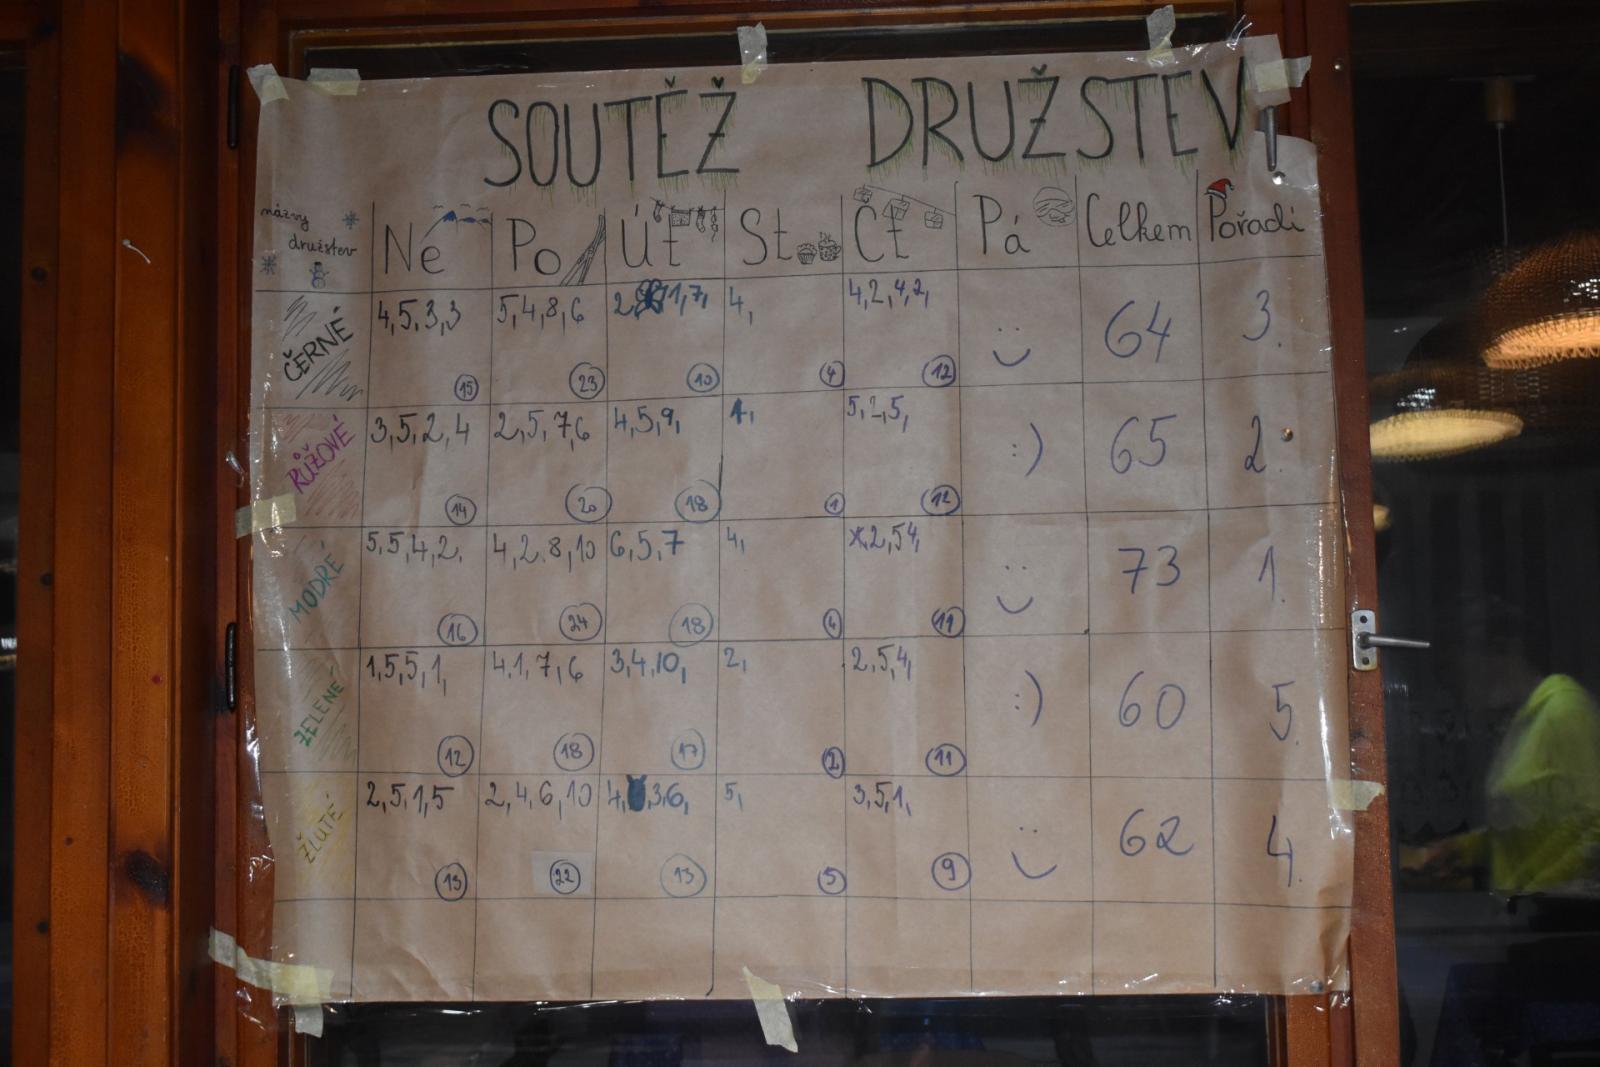 SOUTĚŽ DRUŽSTEV!
názvy družstev Ne Po Út St Čt Pá Celkem Pořadí
ČERNÉ 4,5,3,3 5,4,8,6 2, 1,7, 4, 4,2,4,2, :) 64 3.
15 23 10 4 12
RŮŽOVÉ 3,5,2,4 2,5,7,6 4,5,9, 1, 5,2,5, :) 65 2.
14 20 18 1 12
MODRÉ 5,5,4,2, 4,2,8,10 6,5,7 4, 2,5,4, :) 73 1.
16 24 18 4 11
ZELENÉ 1,5,5,1, 4,1,7,6 3,4,10, 2, 2,5,4, :) 60 5.
12 18 17 2 11
ŽLUTÉ 2,5,1,5 2,4,6,10 4, 3,6, 5, 3,5,1, :) 62 4.
13 22 13 5 9